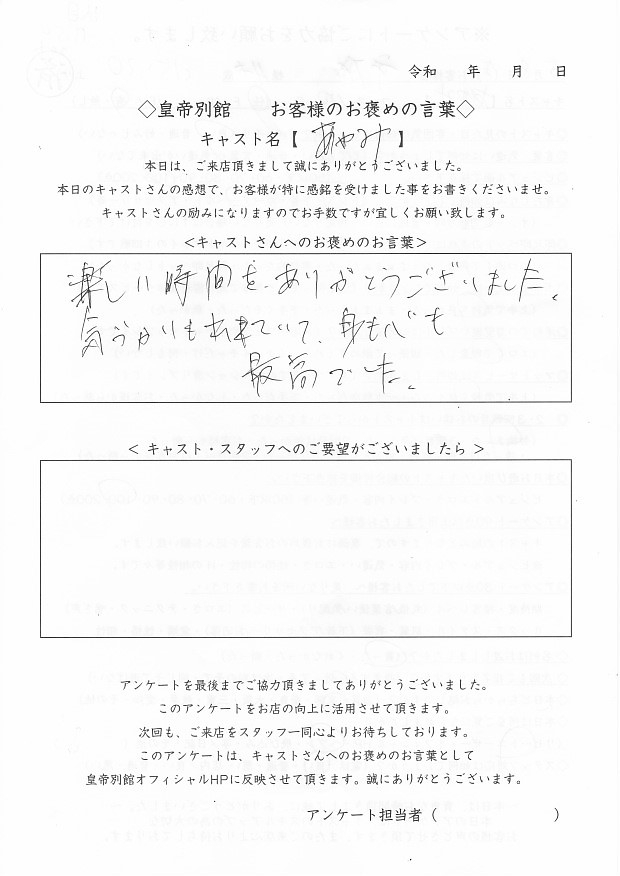 令和　　年　　月　　日
◇皇帝別館　　お客様のお褒めの言葉◇
キャスト名【 あやみ 】
本日は、ご来店頂きまして誠にありがとうございました。
本日のキャストさんの感想で、お客様が特に感銘を受けました事をお書きくださいませ。
キャストさんの励みになりますのでお手数ですが宜しくお願い致します。
＜キャストさんへのお褒めのお言葉＞
楽しい時間を、ありがとうございました。
気づかいも出来ていて、身も心も
最高でした。
＜ キャスト・スタッフへのご要望がございましたら ＞
アンケートを最後までご協力頂きましてありがとうございました。
このアンケートをお店の向上に活用させて頂きます。
次回も、ご来店をスタッフ一同心よりお待ちしております。
このアンケートは、キャストさんへのお褒めのお言葉として
皇帝別館オフィシャルHPに反映させて頂きます。誠にありがとうございます。
アンケート担当者（　　　　　　　）